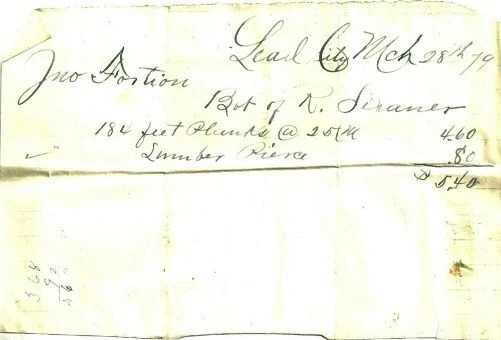 Lead City Mch 28th 79
Jno Fortion
Bot of R.
184 feet Planks @ 25/M 4.60
" Lumber Pierce .80
$ 5.40